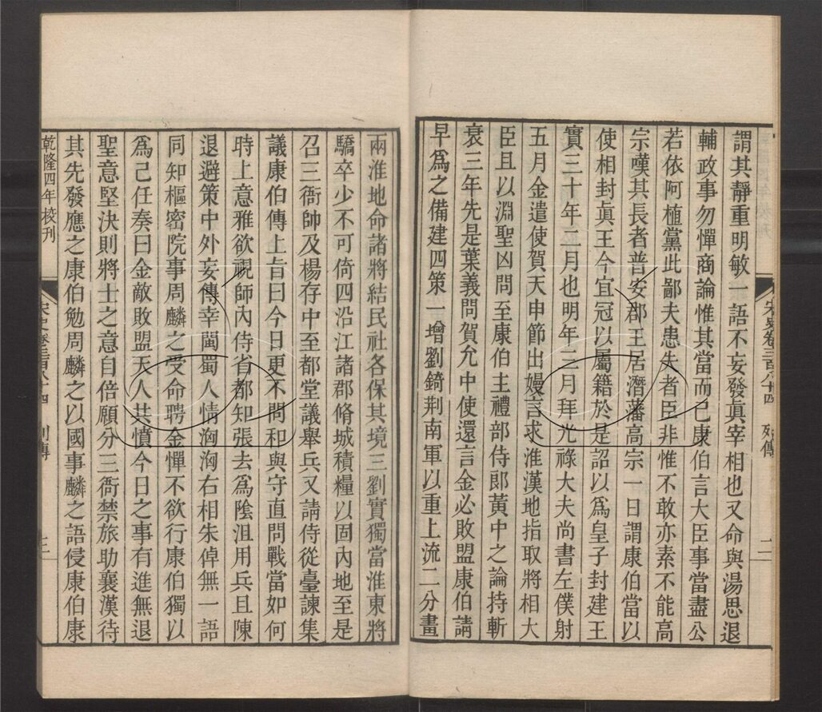 宋史卷三百八十四 列傳
謂其靜重明敏一語不妄發眞宰相也又命與湯思退
輔政事勿憚商論惟其當而已康伯言大臣事當盡公
若依阿植黨此鄙夫患失者臣非惟不敢亦素不能高
宗嘆其長者普安郡王居潛藩高宗一日謂康伯當以
使相封眞王今宜冠以屬籍於是詔以爲皇子封建王
實三十年二月也明年三月拜光祿大夫尚書左僕射
五月金遣使賀天申節出嫚言求淮漢地指取將相大
臣且以淵聖凶問至康伯主禮部侍郎黃中之論持斬
衰三年先是葉義問賀允中使還言金必敗盟康伯請
早爲之備建四策一增劉錡荆南軍以重上流二分畫
兩淮地命諸將結民社各保其境三劉寶獨當淮東將
驕卒少不可倚四沿江諸郡脩城積糧以固內地至是
召三衙帥及楊存中至都堂議舉兵又請侍從臺諫集
議康伯傳上旨曰今日更不問和與守直問戰當如何
時上意雅欲視師內侍省都知張去爲陰沮用兵且陳
退避策中外妄傳幸閩蜀人情洶洶右相朱倬無一語
同知樞密院事周麟之受命聘金憚不欲行康伯獨以
爲己任奏曰金敵敗盟天人共憤今日之事有進無退
聖意堅決則將士之意自倍願分三衙禁旅助襄漢待
其先發應之康伯勉周麟之以國事麟之語侵康伯康
乾隆四年校刊
宋史卷三百八十四 列傳